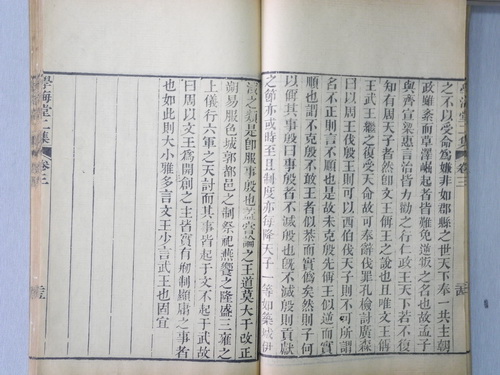 之不以受命爲嫌非如郡縣之世天下奉一共主朝
政雖紊而草澤崛起者皆難免逆叛之名也故孟子
與齊宣梁惠言治皆力勸之行仁政王天下若不復
知有周天子者然卽文王偁王之說也且唯文王偁
王武王繼之復受天命故可奉辭伐罪孔檢討廣森
曰以周王伐殷王則可以西伯伐天子則不可所謂
名不正則言不順也是故未克殷先偁王似逆而實
順也謂不克殷不敢王者似恭而實僞矣然則子何
以解其事殷曰事殷者不滅殷也旣不滅殷則貢獻
之節亦或時至且制度亦每降天子一等如築城伊
淢之類是卽服事殷也嘗論之王道莫大于改正
朔易服色城郭都邑之制祭祀燕饗之隆盛三雍之
上儀行六軍之天討而其事皆起于文不起于武故
曰以文王爲開創之主者實有刱制顯庸之事者
也如此則大小雅多言文王少言武王也固宜
學海堂二集
卷三